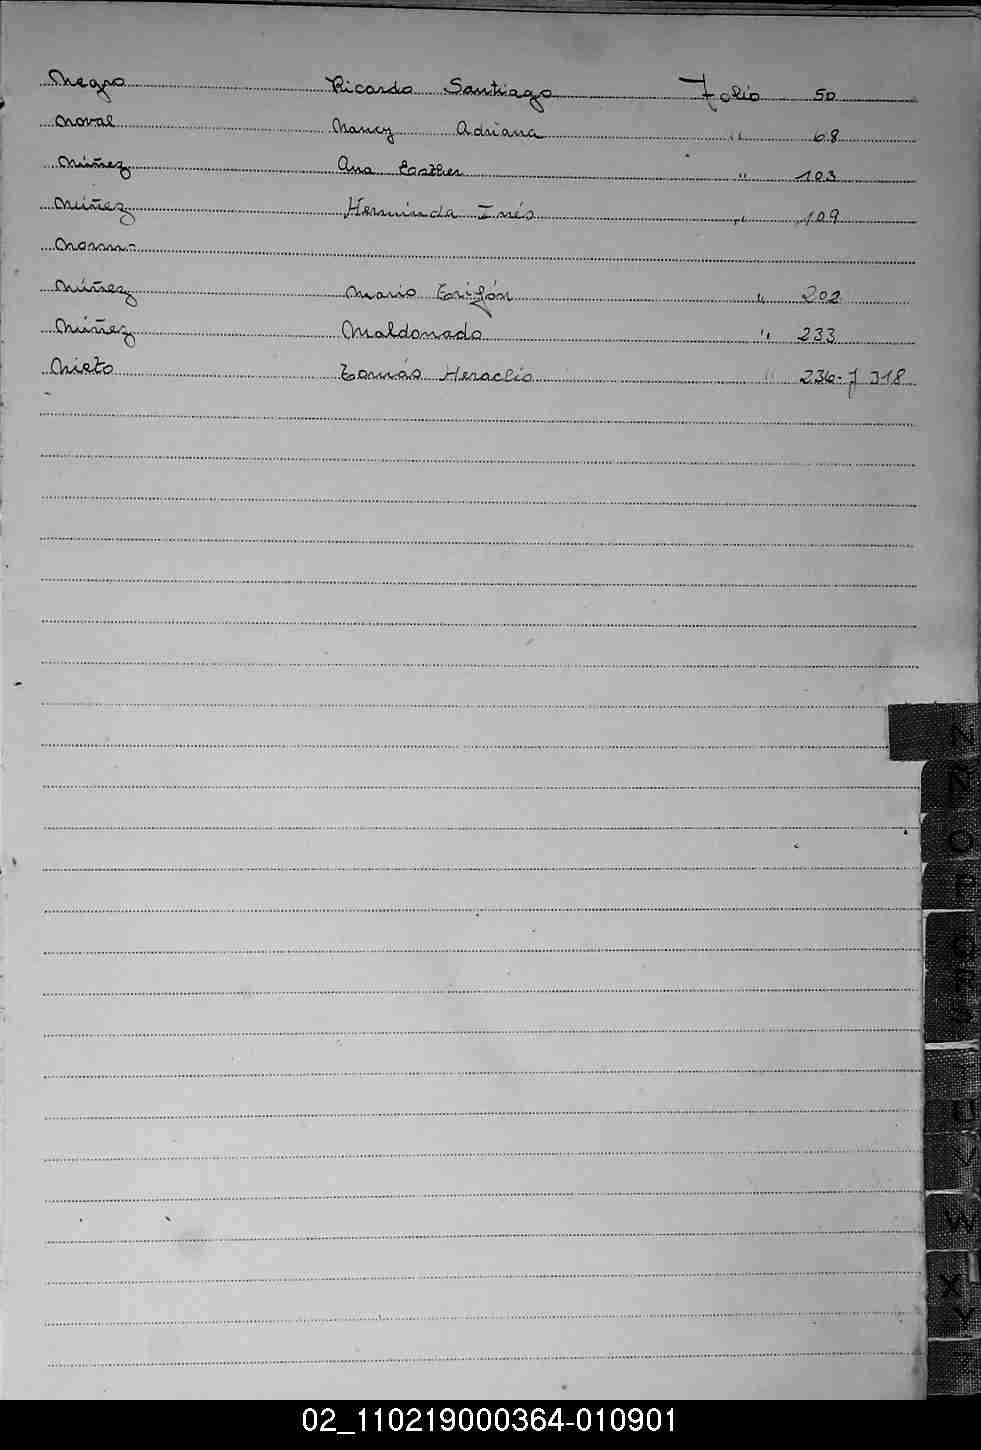 Negro Ricardo Santiago Folio 50
Noval Nancy Adriana " 68
Núñez Ana Esther " 103
Núñez Herminda Inés " 109
Núñez Mario " 202
Núñez Maldonado " 233
Nieto Tomás Heraclio " 236-y 318
N
Ñ
O
P
Q
R
S
U
V
W
X
Y
02_110219000364-010901